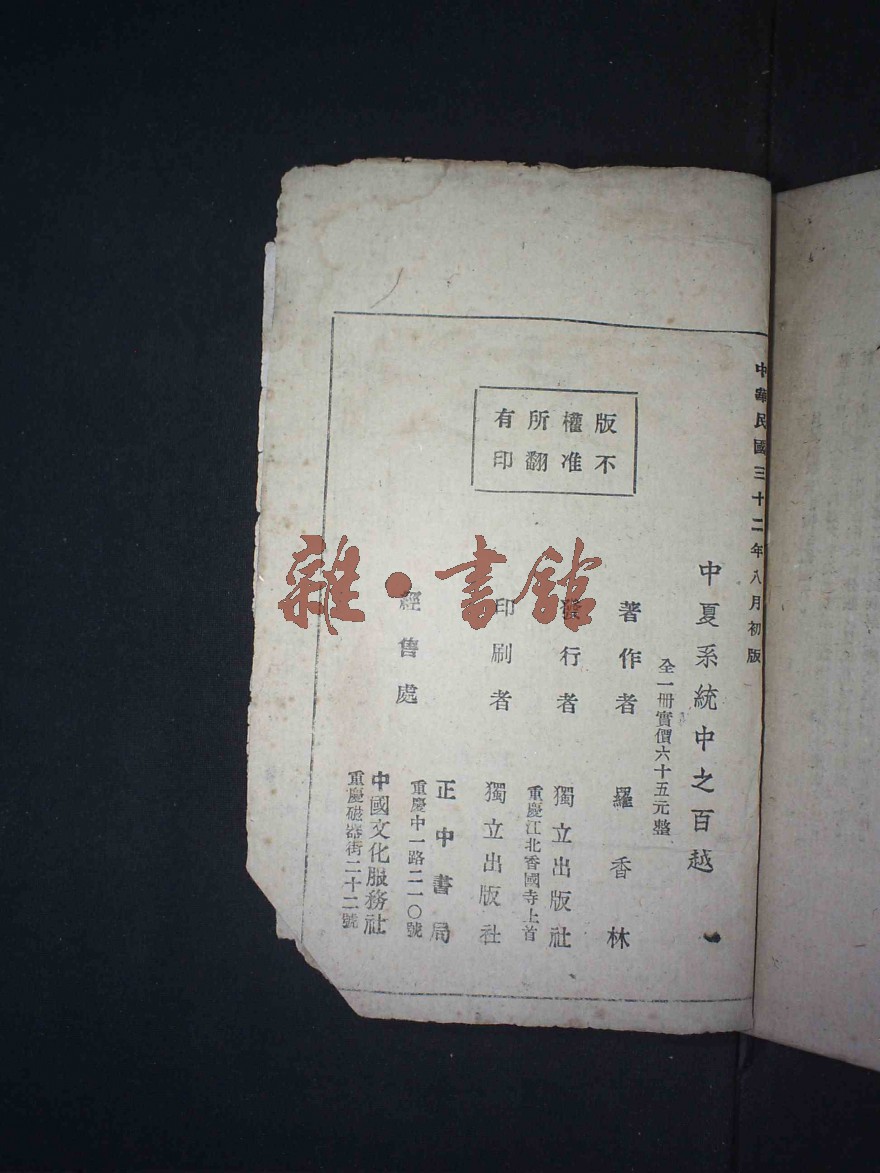 中華民國三十二年八月初版
中夏系統中之百越
全一冊實價六十五元整
版權所有
不准翻印
著作者 羅香林
發行者 獨立出版社
重慶江北香國寺上首
印刷者 獨立出版社
經售處 正中書局
重慶中一路二一〇號
中國文化服務社
重慶磁器街二十二號
雜·書館